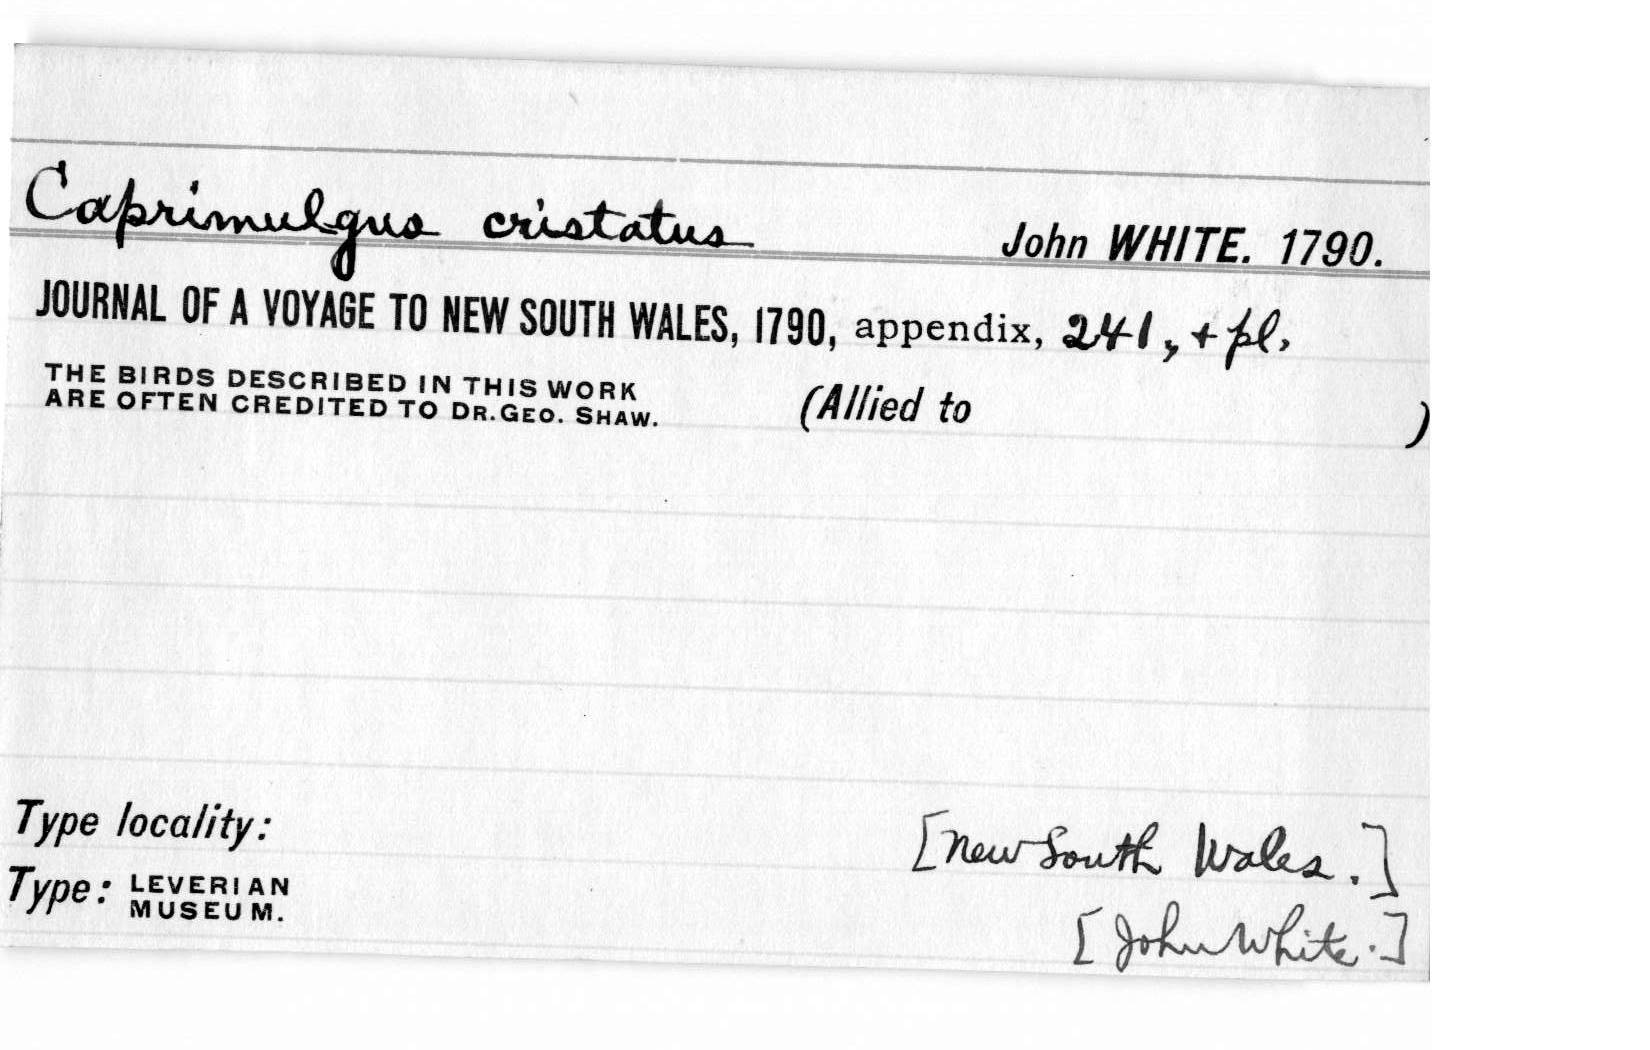 Caprimulgus cristatus John WHITE. 1790.
JOURNAL OF A VOYAGE TO NEW SOUTH WALES, 1790, appendix, 241, + pl,
THE BIRDS DESCRIBED IN THIS WORK
ARE OFTEN CREDITED TO DR. GEO. SHAW.
(Allied to )
Type locality: [New South Wales.]
Type: LEVERIAN
MUSEUM.
[John White.]